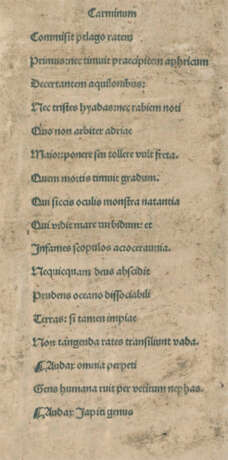 Carminum
Commisit pelago ratem
Primus: nec timuit præcipitem aphricum
Decertantem aquilonibus:
Nec tristes hyadas: nec rabiem noti
Quo non arbiter adriae
Maior: ponere seu tollere vult freta.
Quem mortis timuit gradum.
Qui siccis oculis monstra natantia
Qui vidit mare turbidum: et
Infames scopulos acroceraunia.
Nequicquam deus abscidit
Prudens oceano dissociabili
Terras: si tamen impiae
Non tangenda rates transiliunt vada.
Audax omnia perpeti
Gens humana ruit per vetitum nephas.
Audax Iapeti genus